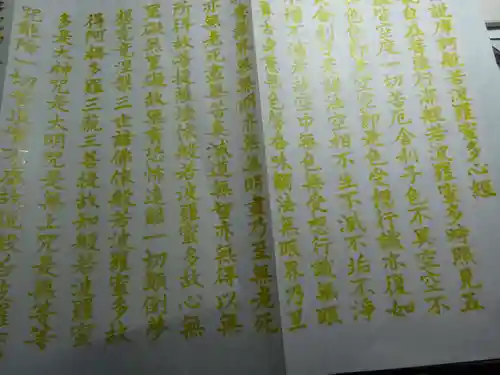 說摩訶般若波羅蜜多心經
自在菩薩行深般若波羅蜜多時照見五
皆空度一切苦厄舍利子色不異空空不
色色即是空空即是色受想行識亦復如
舍利子是諸法空相不生不滅不垢不淨
不增不減是故空中無色無受想行識無眼
鼻舌身意無色聲香味觸法無眼界乃至
意識界無無明亦無無明盡乃至無老死
亦無老死盡無苦集滅道無智亦無得以無
所得故菩提薩埵依般若波羅蜜多故心無
罣礙無罣礙故無有恐怖遠離一切顛倒夢
想究竟涅槃三世諸佛依般若波羅蜜多故
得阿耨多羅三藐三菩提故知般若波羅蜜
多是大神咒是大明咒是無上咒是無等等
咒能除一切苦真實不虛故說般若